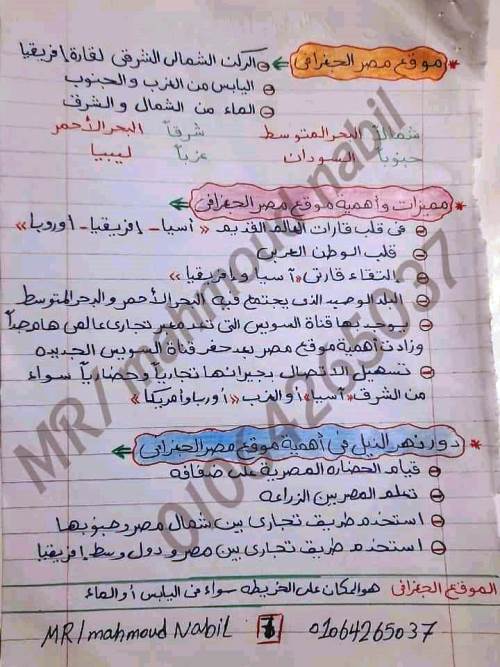 * موقع مصر الجغرافى ← ⊖ الركن الشمالى الشرقى لقارة إفريقيا
⊖ اليابس من الغرب والجنوب
⊖ الماء من الشمال والشرق
شمالاً البحر المتوسط شرقاً البحر الأحمر
جنوباً السودان غرباً ليبيا
* مميزات وأهمية موقع مصر الجغرافى ←
⊖ فى قلب قارات العالم القديم « آسيا - إفريقيا - أوروبا »
⊖ قلب الوطن العربى
⊖ إلتقاء قارتى « آسيا و إفريقيا »
⊖ البلد الوحيد الذى يجتمع فيه البحر الأحمر والبحر المتوسط
⊖ يوجد بها قناة السويس التى تعد ممر تجارى عالمى هام جداً
وزادت أهمية موقع مصر بعد حفر قناة السويس الجديده
⊖ تسهيل الاتصال بجيرانها تجارياً وحضارياً سواء
من الشرق « آسيا » أو الغرب « أوربا وأمريكا »
* دور نهر النيل فى أهمية موقع مصر الجغرافى ←
⊖ قيام الحضاره المصرية على ضفافه
⊖ تعلم المصريين الزراعه
⊖ استخدم طريق تجارى بين شمال مصر وجنوبها
⊖ استخدم طريق تجارى بين مصر ودول وسط إفريقيا
الموقع الجغرافى هو المكان على الخريطه سواء من اليابس أو الماء
MR/mahmoud Nabil 7 01064265037
MR/ mahmoud nabil
01064265037